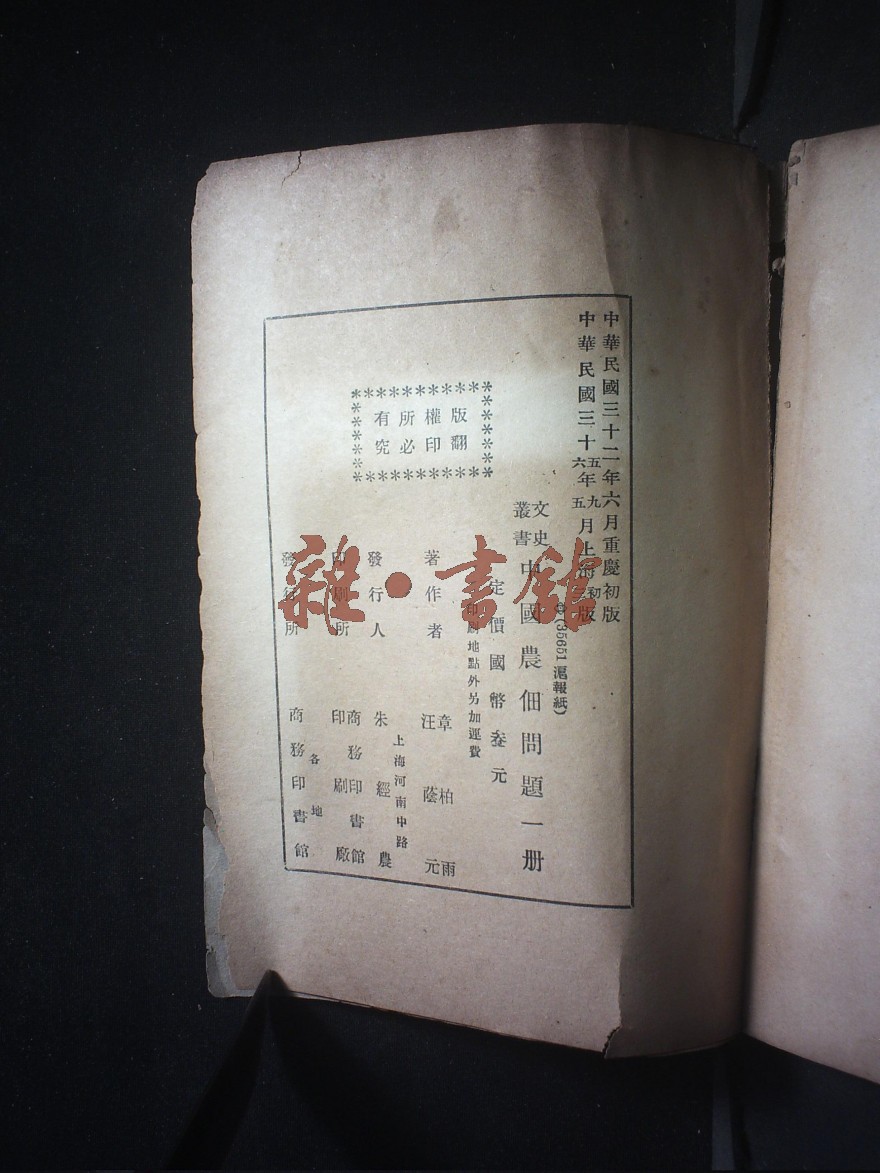 中華民國三十二年六月重慶初版
中華民國三十五年九月上海初版
六 五 三
◎(35651 滬報紙)
文史
叢書
中國農佃問題一册
定價國幣叁元
印刷地點外另加運費
著作者
章柏雨
汪蔭元
上海河南中路
發行人
朱經農
印刷所
商務印書館
印刷廠
發行所
各地
商務印書館
版權所有
翻印必究
雜·書館